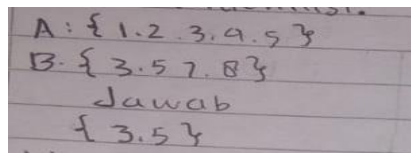 A : { 1.2.3.4.5 }
B. { 3.5 7.8 }
Jawab
{ 3.5 }